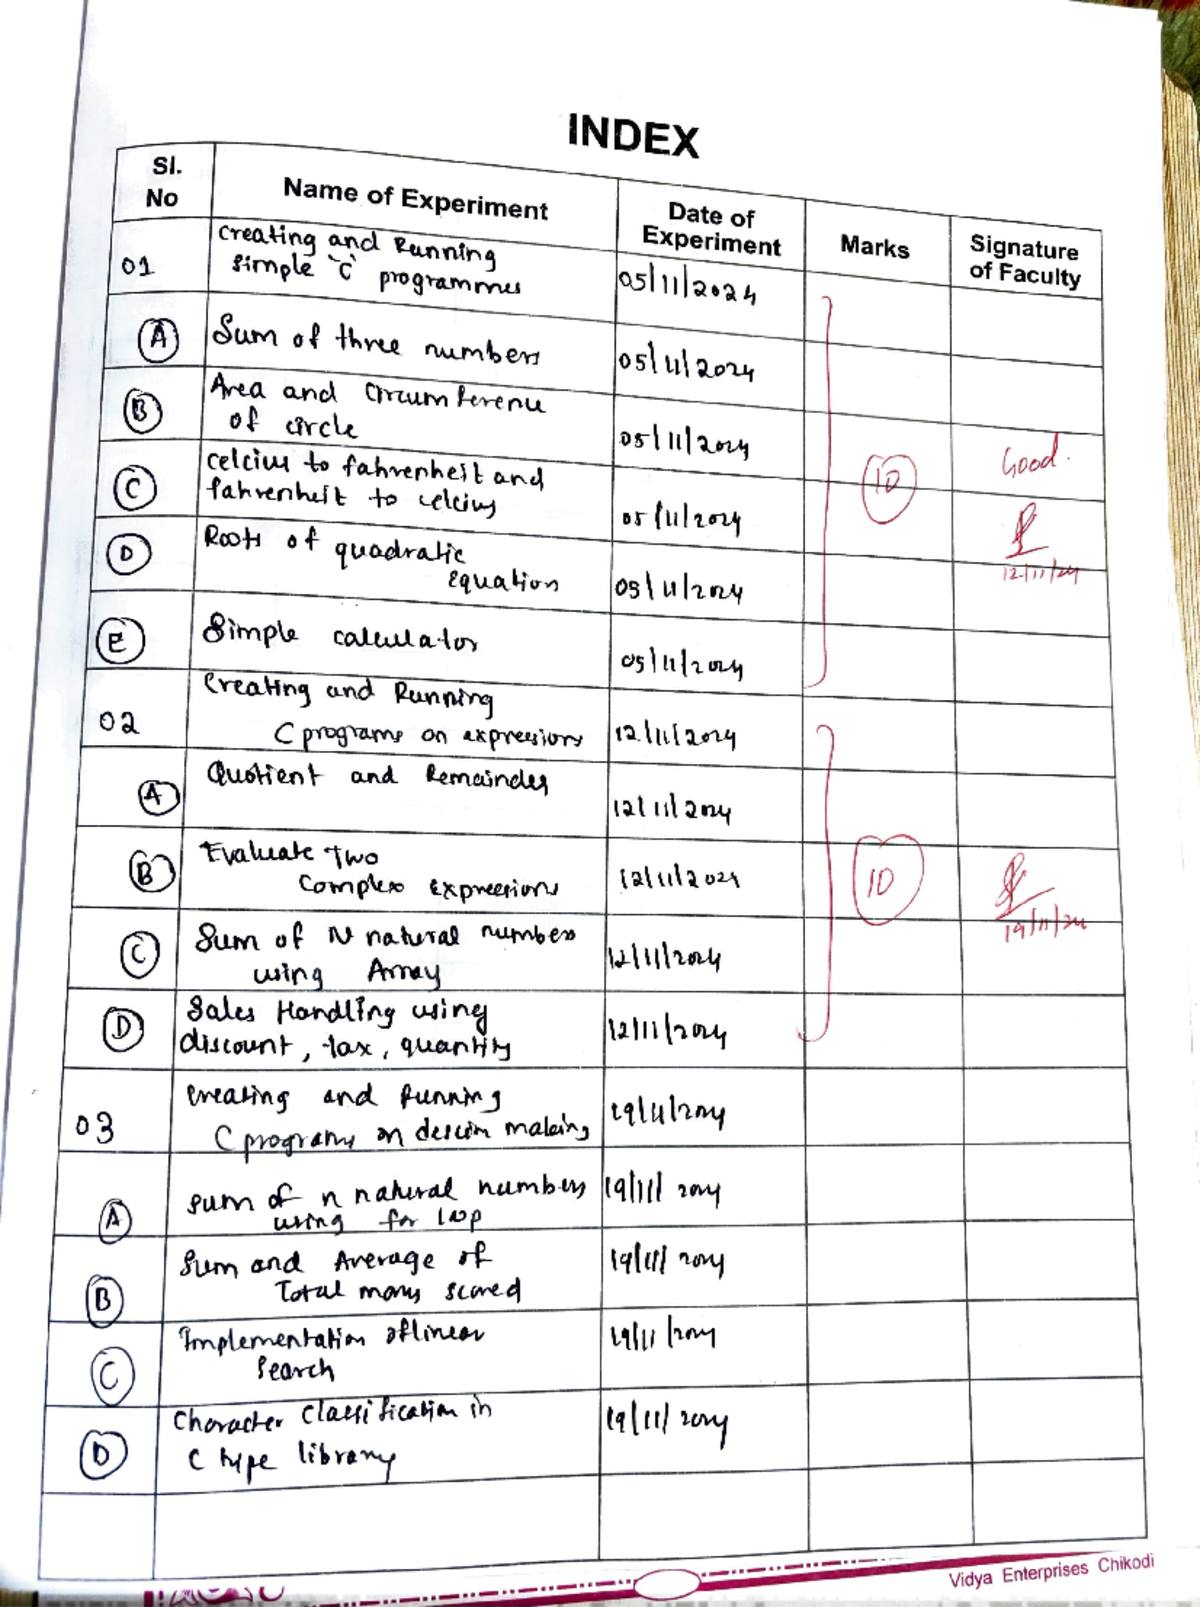 INDEX
Sl. No
Name of Experiment
Date of Experiment
Marks
Signature of Faculty
01
Creating and Running
simple "C" programmes
05/11/2024
A
Sum of three numbers
05/11/2024
B
Area and Circumference
of circle
05/11/2024
Good.
C
celcius to fahrenheit and
fahrenheit to celcius
05/11/2024
10
12/11/24
D
Roots of quadratic
Equation
05/11/2024
E
Simple calculator
05/11/2024
02
Creating and Running
C programs on expressions
12/11/2024
A
Quotient and Remainder
12/11/2024
B
Evaluate Two
Complex Expressions
12/11/2024
10
19/11/24
C
Sum of N natural numbers
using Array
12/11/2024
D
Sales Handling using
discount, tax, quantity
12/11/2024
03
Creating and Running
C programs on descion making
19/11/2024
A
sum of n natural numbers
using for loop
19/11/2024
B
Sum and Average of
Total marks scored
19/11/2024
C
Implementation of linear
Search
19/11/2024
D
Character Classification in
C type library
19/11/2024
Vidya Enterprises Chikodi